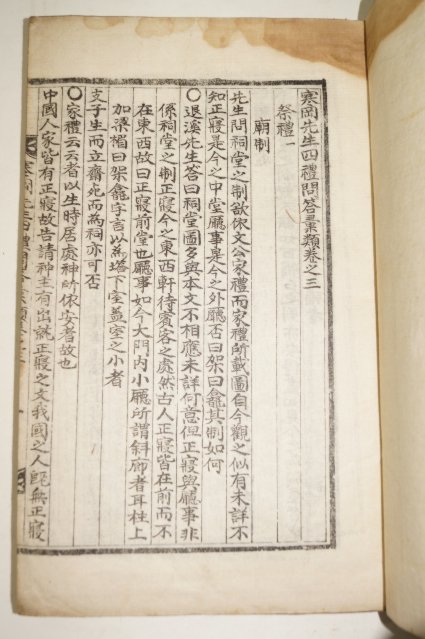 寒岡先生四禮問答彙類卷之三
祭禮一
廟制
先生問祠堂之制欲依文公家禮而家禮所載圖自今觀之似有未詳不
知正寢是今之中堂廳事是今之外廳否曰架曰龕其制如何
○退溪先生答曰祠堂圖多與本文不相應未詳何意但正寢與廳事非
係祠堂之制正寢今之東西軒待賓客之處然古人正寢皆在前而不
在東西故曰正寢前堂也廳事如今大門內小廳所謂斜廊者耳柱上
加梁楣曰架龕字書以爲塔下室蓋室之小者
支子生而立齋死而爲祠亦可否
○家禮云云者以生時居處神所依安者故也
中國人家皆有正寢故告請神主有出就正寢之文我國之人旣無正寢